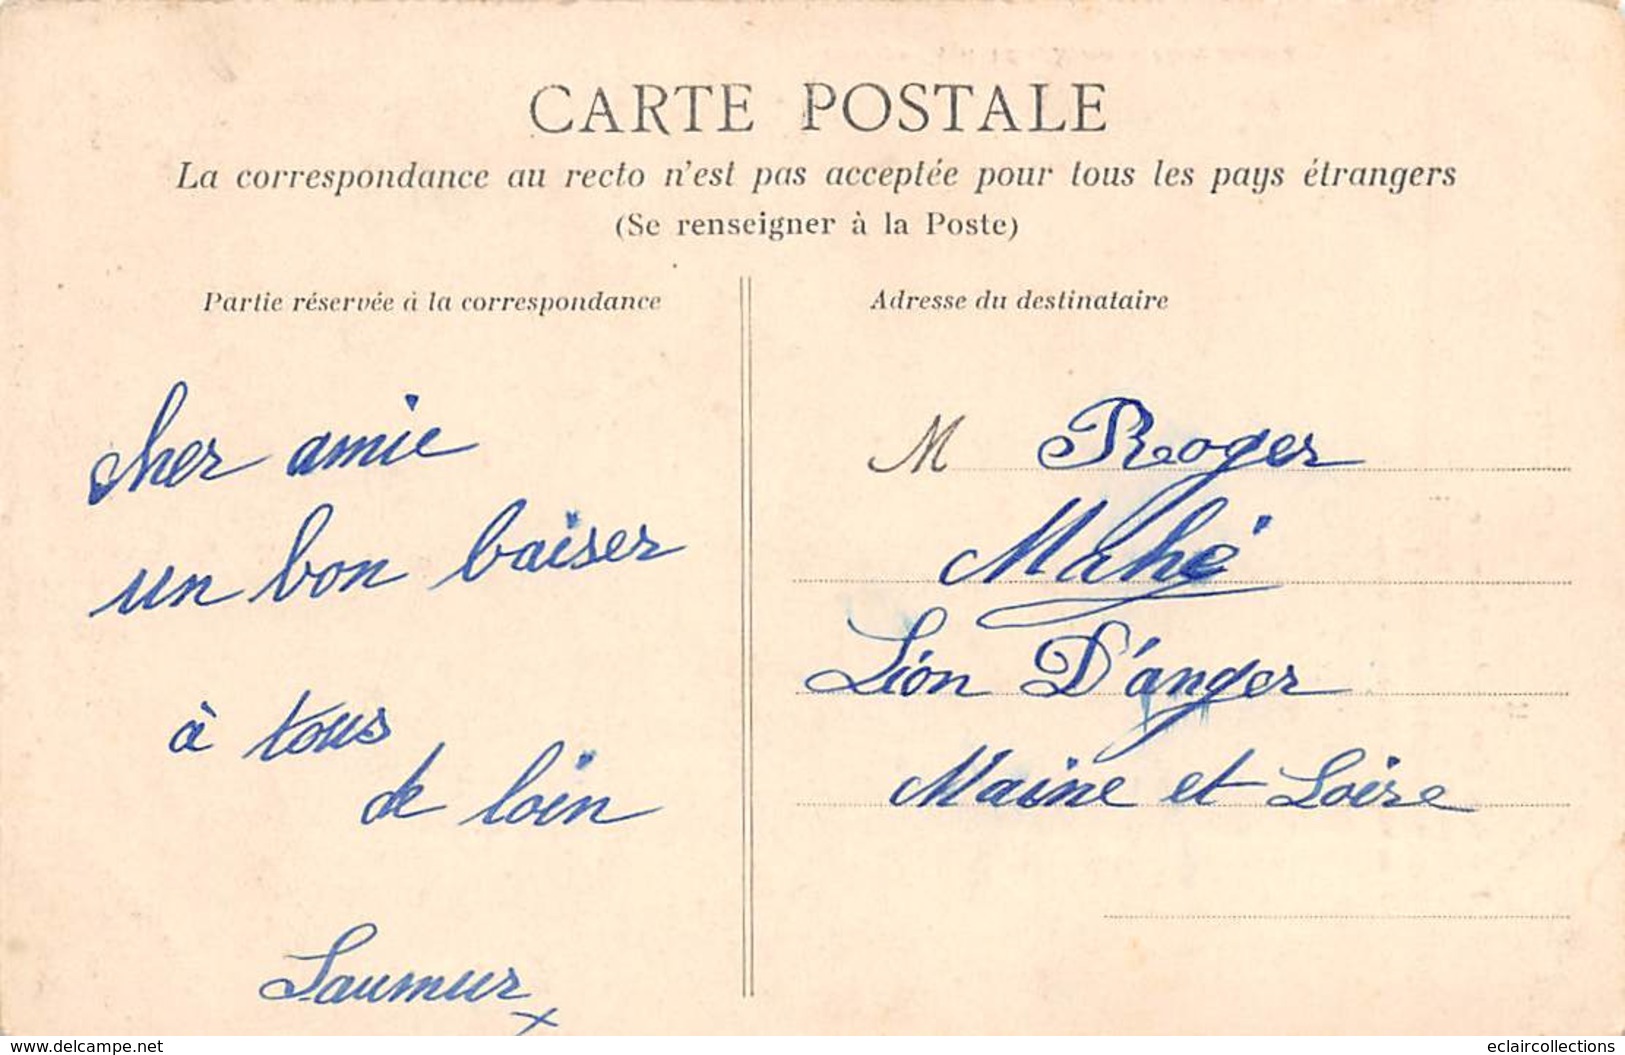 CARTE POSTALE
La correspondance au recto n'est pas acceptée pour tous les pays étrangers
(Se renseigner à la Poste)
Partie réservée à la correspondance
cher amie
un bon baiser
à tous
de loin
Saumur
Adresse du destinataire
M Roger
Mahé
Lion D'anger
Maine et Loire
www.delcampe.net
eclaircollections